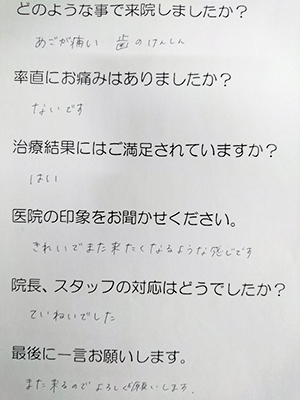 どのような事で来院しましたか？
あごが痛い 歯のけんしん
率直にお痛みはありましたか？
ないです
治療結果にはご満足されていますか？
はい
医院の印象をお聞かせください。
きれいでまた来たくなるような感じです
院長、スタッフの対応はどうでしたか？
ていねいでした
最後に一言お願いします。
また来るのでよろしくお願いします.